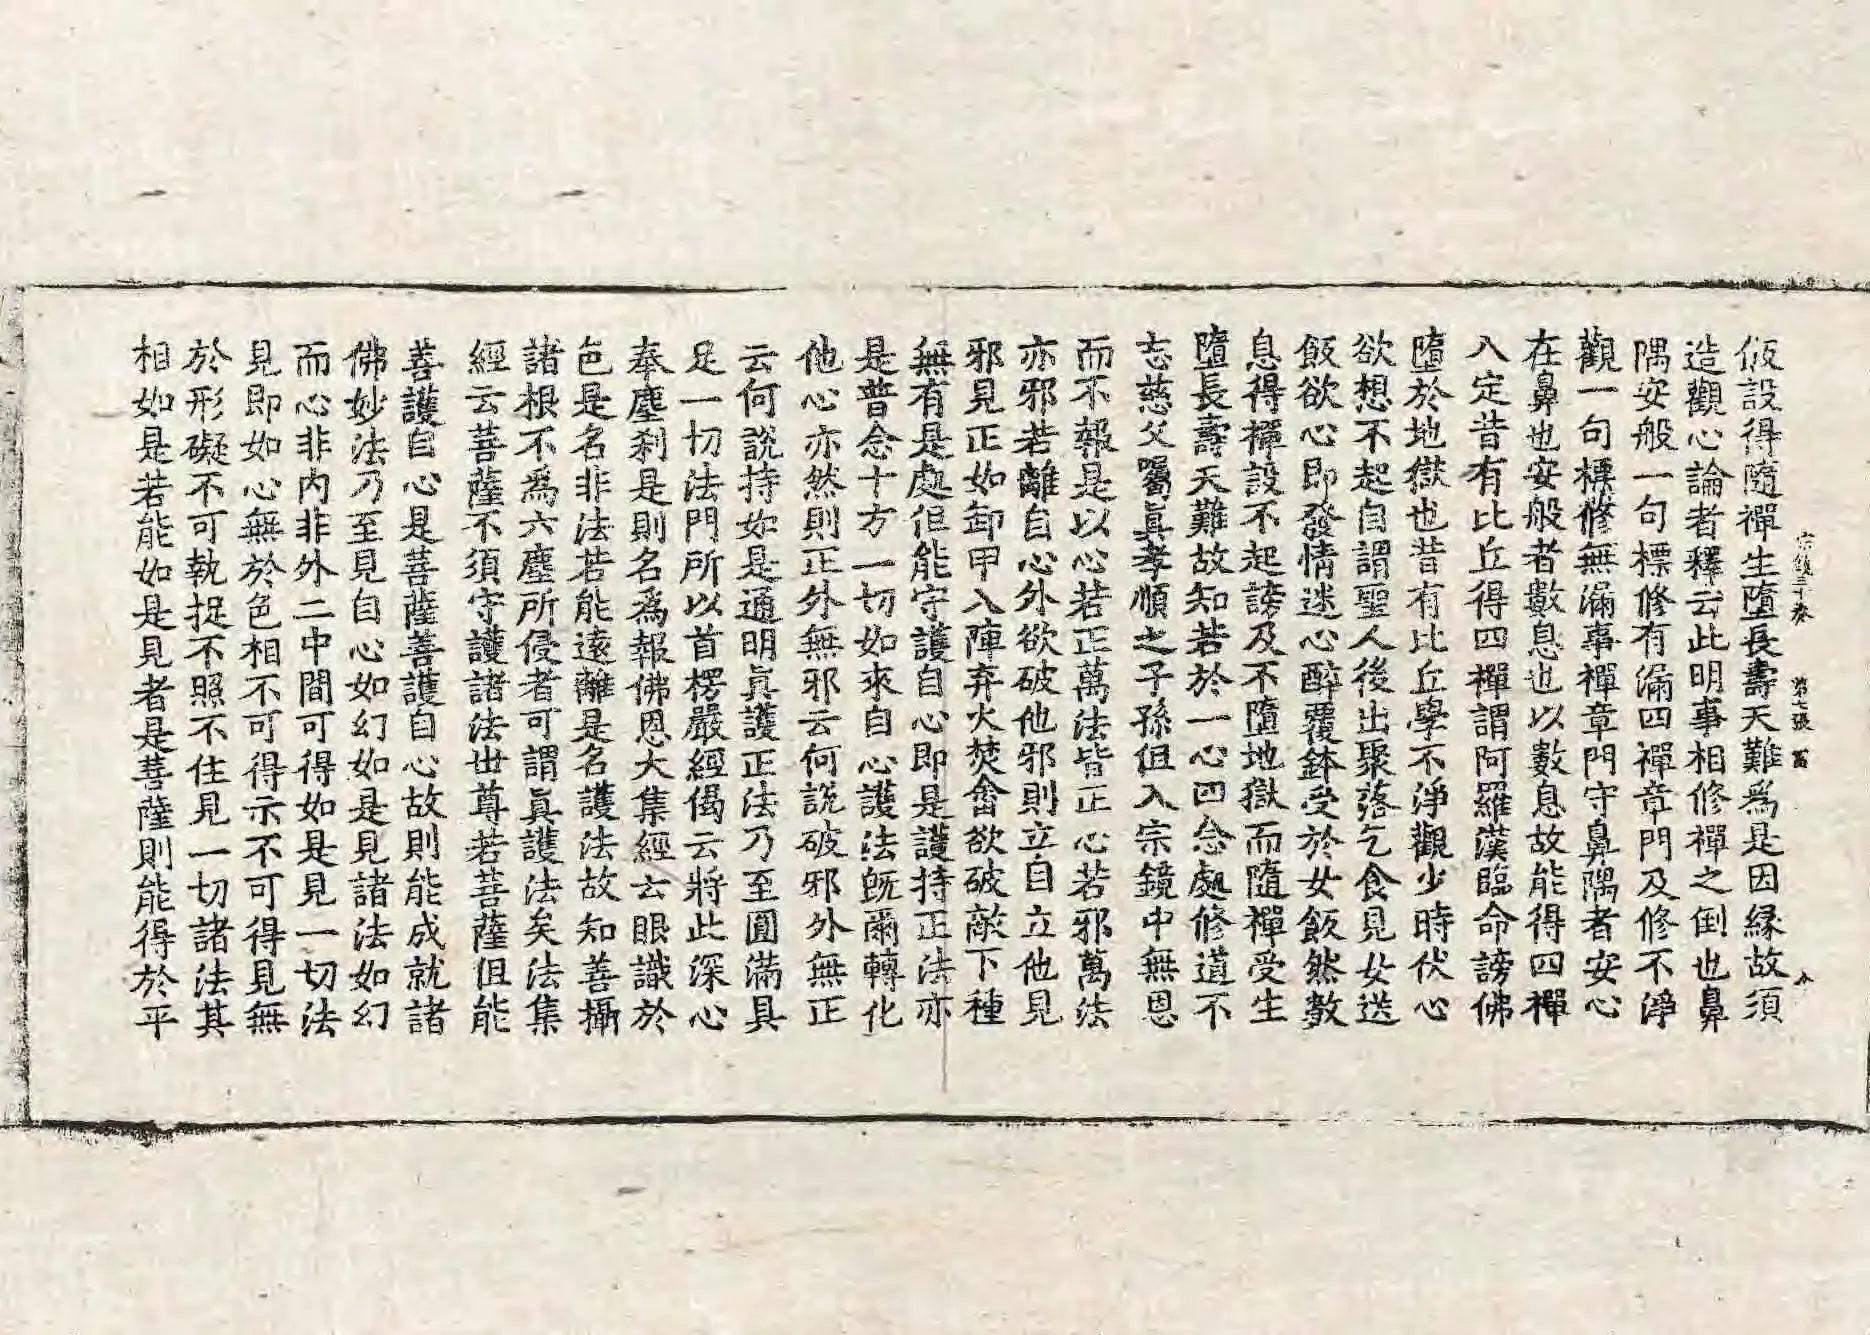 宗鏡三十卷 第七張 富
仮設得隨禪生墮長壽天難爲是因緣故須
造觀心論者釋云此明事相修禪之倒也鼻
隅安般一句標修有漏四禪章門及修不淨
觀一句標修無漏事禪章門守鼻隅者安心
在鼻也安般者數息也以數息故能得四禪
八定昔有比丘得四禪謂阿羅漢臨命謗佛
墮於地獄也昔有比丘學不淨觀少時伏心
欲想不起自謂聖人後出聚落乞食見女送
飯欲心即發情迷心醉覆鉢受於女飯然數
息得禪設不起謗及不墮地獄而隨禪受生
墮長壽天難故知若於一心四念處修道不
忘慈父囑真孝順之子孫但入宗鏡中無恩
而不報是以心若正萬法皆正心若邪萬法
亦邪若離自心外欲破他邪則立自立他見
邪見正如卸甲入陣弃火焚畬欲破敵下種
無有是處但能守護自心即是護持正法亦
是普念十方一切如來自心護法旣爾轉化
他心亦然則正外無邪云何說破邪外無正
云何說持如是通明真護正法乃至圓滿具
足一切法門所以首楞嚴經偈云將此深心
奉塵刹是則名爲報佛恩大集經云眼識於
色是名非法若能遠離是名護法故知善攝
諸根不爲六塵所侵者可謂真護法矣法集
經云菩薩不須守護諸法世尊若菩薩但能
善護自心是菩薩善護自心故則能成就諸
佛妙法乃至見自心如幻如是見諸法如幻
而心非內非外二中間可得如是見一切法
見即如心無於色相不可得示不可得見無
於形礙不可執捉不照不住見一切諸法其
相如是若能如是見者是菩薩則能得於平